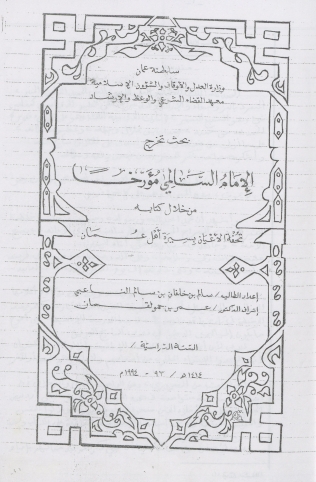 سلطنة عمان
وزارة العدل والأوقاف والشؤون الإسلامية
معهد القضاء الشرعي والوعظ والإرشاد
بحث تخرج
الإمام السالمي مؤرخاً
من خلال كتابه
تحفة الأعيان بسيرة أهل عمان
إعداد الطالب / سالم بن خلفان بن سالم
إشراف الدكتور / عمر بن
السنة الدراسية /
١٤١٤هـ / ٩٣ - ١٩٩٤م